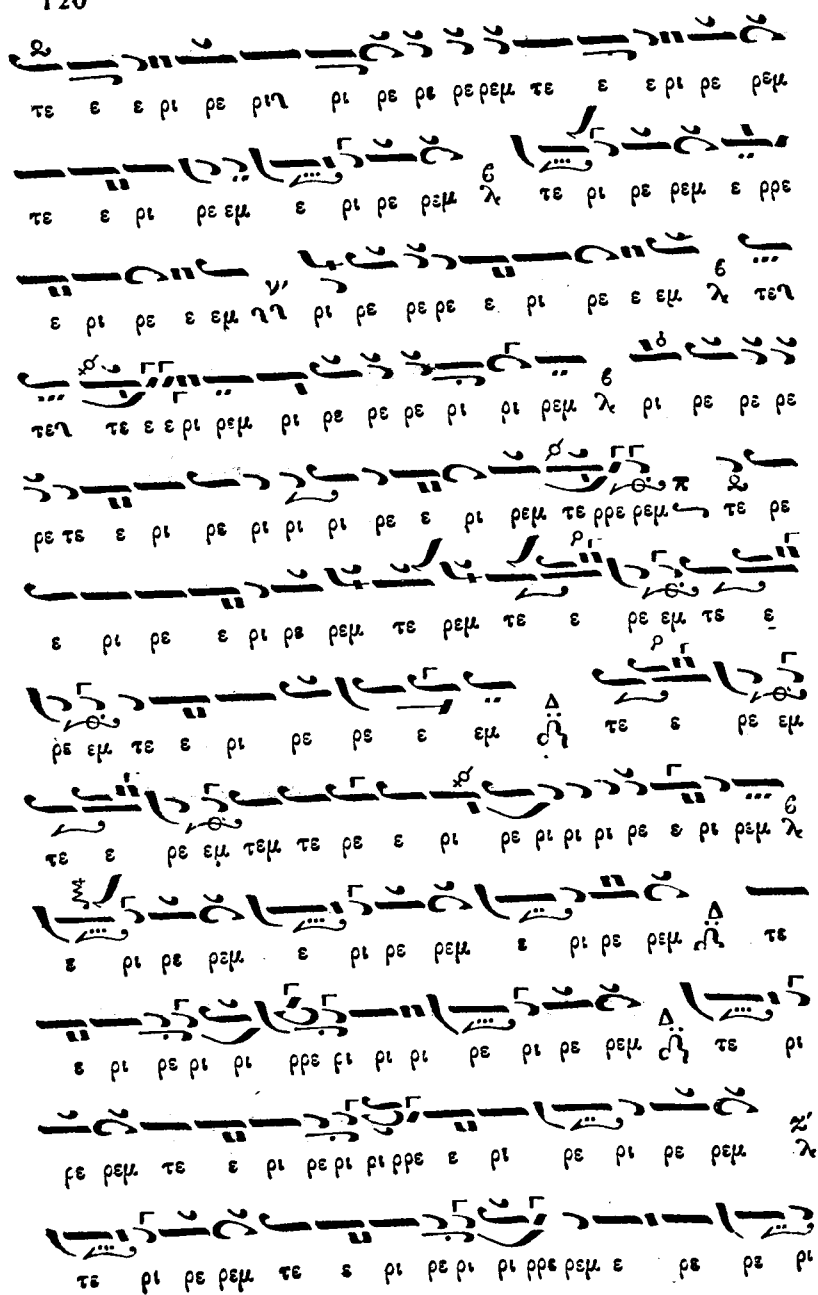 120
τε ε ε ρι ρε ριη ρι ρε ρε ρε ρεμ τε ε ε ρι ρε ρεμ
τε ε ρι ρε εμ ε ρι ρε ρεμ τε ρι ρε ρεμ ε ρρε
ε ρι ρε ε εμ ρι ρε ρε ρε ε ρι ρε ε εμ
τε ε ε ρι ρεμ ρι ρε ρε ρε ρι ρι ρεμ ρι ρε ρε ρε
ρε τε ε ρι ρε ρι ρι ρι ρε ε ρι ρεμ τε ρρε ρεμ τε ρε
ε ρι ρε ε ρι ρε ρεμ τε ρεμ τε ε ρε εμ τε ε
ρε εμ τε ε ρι ρε ρε ε εμ Δ τε ε ρε εμ
τε ε ρε εμ τεμ τε ρε ε ρι ρε ρι ρι ρι ρε ε ρι ρεμ
ε ρι ρε ρεμ ε ρι ρε ρεμ ε ρι ρε ρεμ Δ τε
ε ρι ρε ρι ρι ρρε ρι ρι ρι ρε ρι ρε ρεμ Δ τε ρι
ρε ρεμ τε ε ρι ρε ρι ρι ρρε ε ρι ρε ρι ρε ρεμ
τε ρι ρε ρεμ τε ε ρι ρε ρι ρι ρρε ρεμ ε ρε ρε ρι